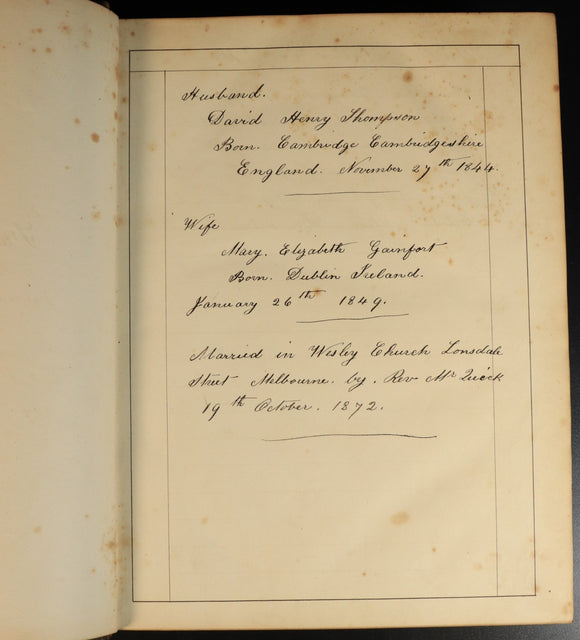 Husband.
David Henry Thompson
Born. Cambridge Cambridgeshire
England. November 27th 1844.
Wife
Mary. Elizabeth Gainfort
Born. Dublin Ireland.
January 26th 1849.
Married in Wesley Church Lonsdale
Street Melbourne. by. Rev Mr Quick
19th October. 1872.